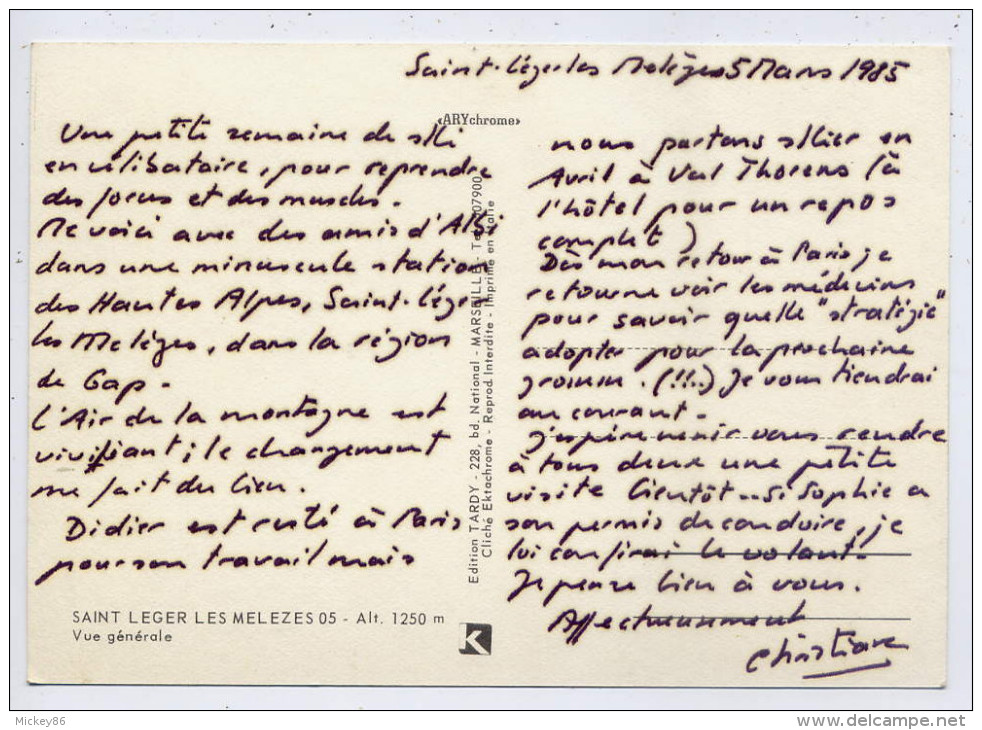 Saint-Léger les Melèzes 5 Mars 1985
«ARYchrome»
Une petite semaine de ski
en célibataire, pour reprendre
des forces et des muscles.
Me voici avec des amis d'Albi
dans une minuscule station
des Hautes Alpes, Saint-Léger
les Melèzes, dans la région
de Gap.
L'Air de la montagne est
vivifiant ; le changement
me fait du bien.
Didier est resté à Paris
pour son travail mais
nous partons skier en
Avril à Val Thorens (à
l'hôtel pour un repos
complet)
Dès mon retour à Paris je
retourne voir les médecins
pour savoir quelle "stratégie"
adopter pour la prochaine
grossesse. (!!..) Je vous tiendrai
au courant.
J'espère venir vous rendre
à tous deux une petite
visite bientôt... Si Sophie a
son permis de conduire, je
lui confirai le volant.
Je pense bien à vous.
Affectueusement
Christiane
Edition TARDY - 228, bd. National - MARSEILLE - T 07900
Cliché Ektachrome - Reprod. Interdite - Imprimé en Italie
SAINT LEGER LES MELEZES 05 - Alt. 1250 m
Vue générale
K
Mickey86
www.delcampe.net